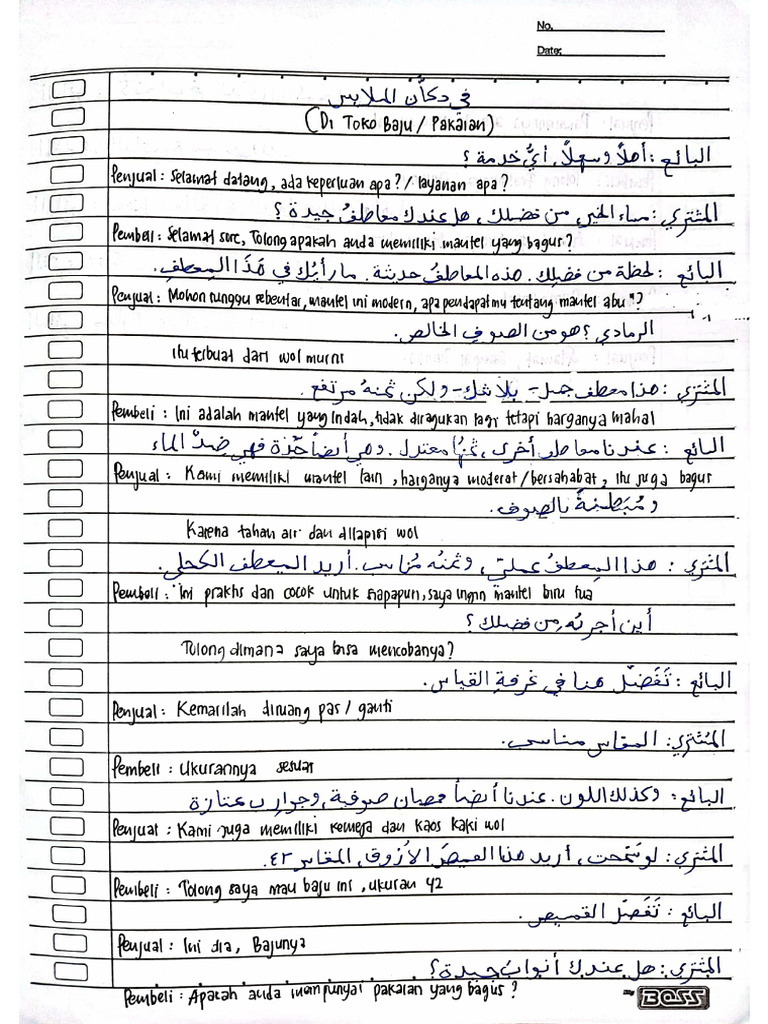 No.
Date:
في دكان الملابس
(Di Toko Baju / Pakaian)
البائع : أهلاً وسهلاً، أيُّ خدمة ؟
Penjual : Selamat datang, ada keperluan apa? / layanan apa ?
المشتري : مساء الخير، من فضلك، هل عندك معاطفُ جيدة ؟
Pembeli : Selamat sore, Tolong apakah anda memiliki mantel yang bagus?
البائع : لحظة من فضلك. هذه المعاطفُ حديثة. ما رأيُكَ في هَذَا المِعطَفِ.
Penjual : Mohon tunggu sebentar, mantel ini modern, apa pendapatmu tentang mantel abu"?
الرمادي ؟ هو من الصوف الخالص.
itu terbuat dari wol murni
المشتري : هذا معطف جميل - بلا شك - ولكن ثمنهُ مرتفع.
Pembeli : Ini adalah mantel yang indah, tidak diragukan lagi tetapi harganya mahal
البائع : عندنا معاطف أخرى، ثمنُها معتدل. وهي أيضاً جيّدة فهي ضدّ الماء
Penjual : Kami memiliki mantel lain, harganya moderat / bersahabat, itu juga bagus
و مُبَطَّنةٌ بالصوف.
Karena tahan air dan dilapisi wol
المشتري : هذا المِعطفُ عمليّ، وثمنُه مُناسب. أريد المِعطف الكحلي.
Pembeli : Ini praktis dan cocok untuk siapapun, saya ingin mantel biru tua
أين أجربُه من فضلك ؟
Tolong dimana saya bisa mencobanya?
البائع : تَفَضَّل هنا في غرفةِ القياس.
Penjual : Kemarilah diruang pas / ganti
المُشتري : المقاس مناسب.
Pembeli : Ukurannya sesuai
البائع : وكذلك اللون. عندنا أيضاً قمصان صوفية، وجوارب ممتازة
Penjual : Kami juga memiliki kemeja dan kaos kaki wol
المشتري : لو سَمَحت، أريد هذا القميصَ الأزرق، المقاس ٤٢.
Pembeli : Tolong saya mau baju ini, ukuran 42
البائع : تَفَضّل القميص.
Penjual : Ini dia, Bajunya
المشتري : هل عندك أثواب جيدة ؟
Pembeli : Apakah anda mempunyai pakaian yang bagus ?
BOSS